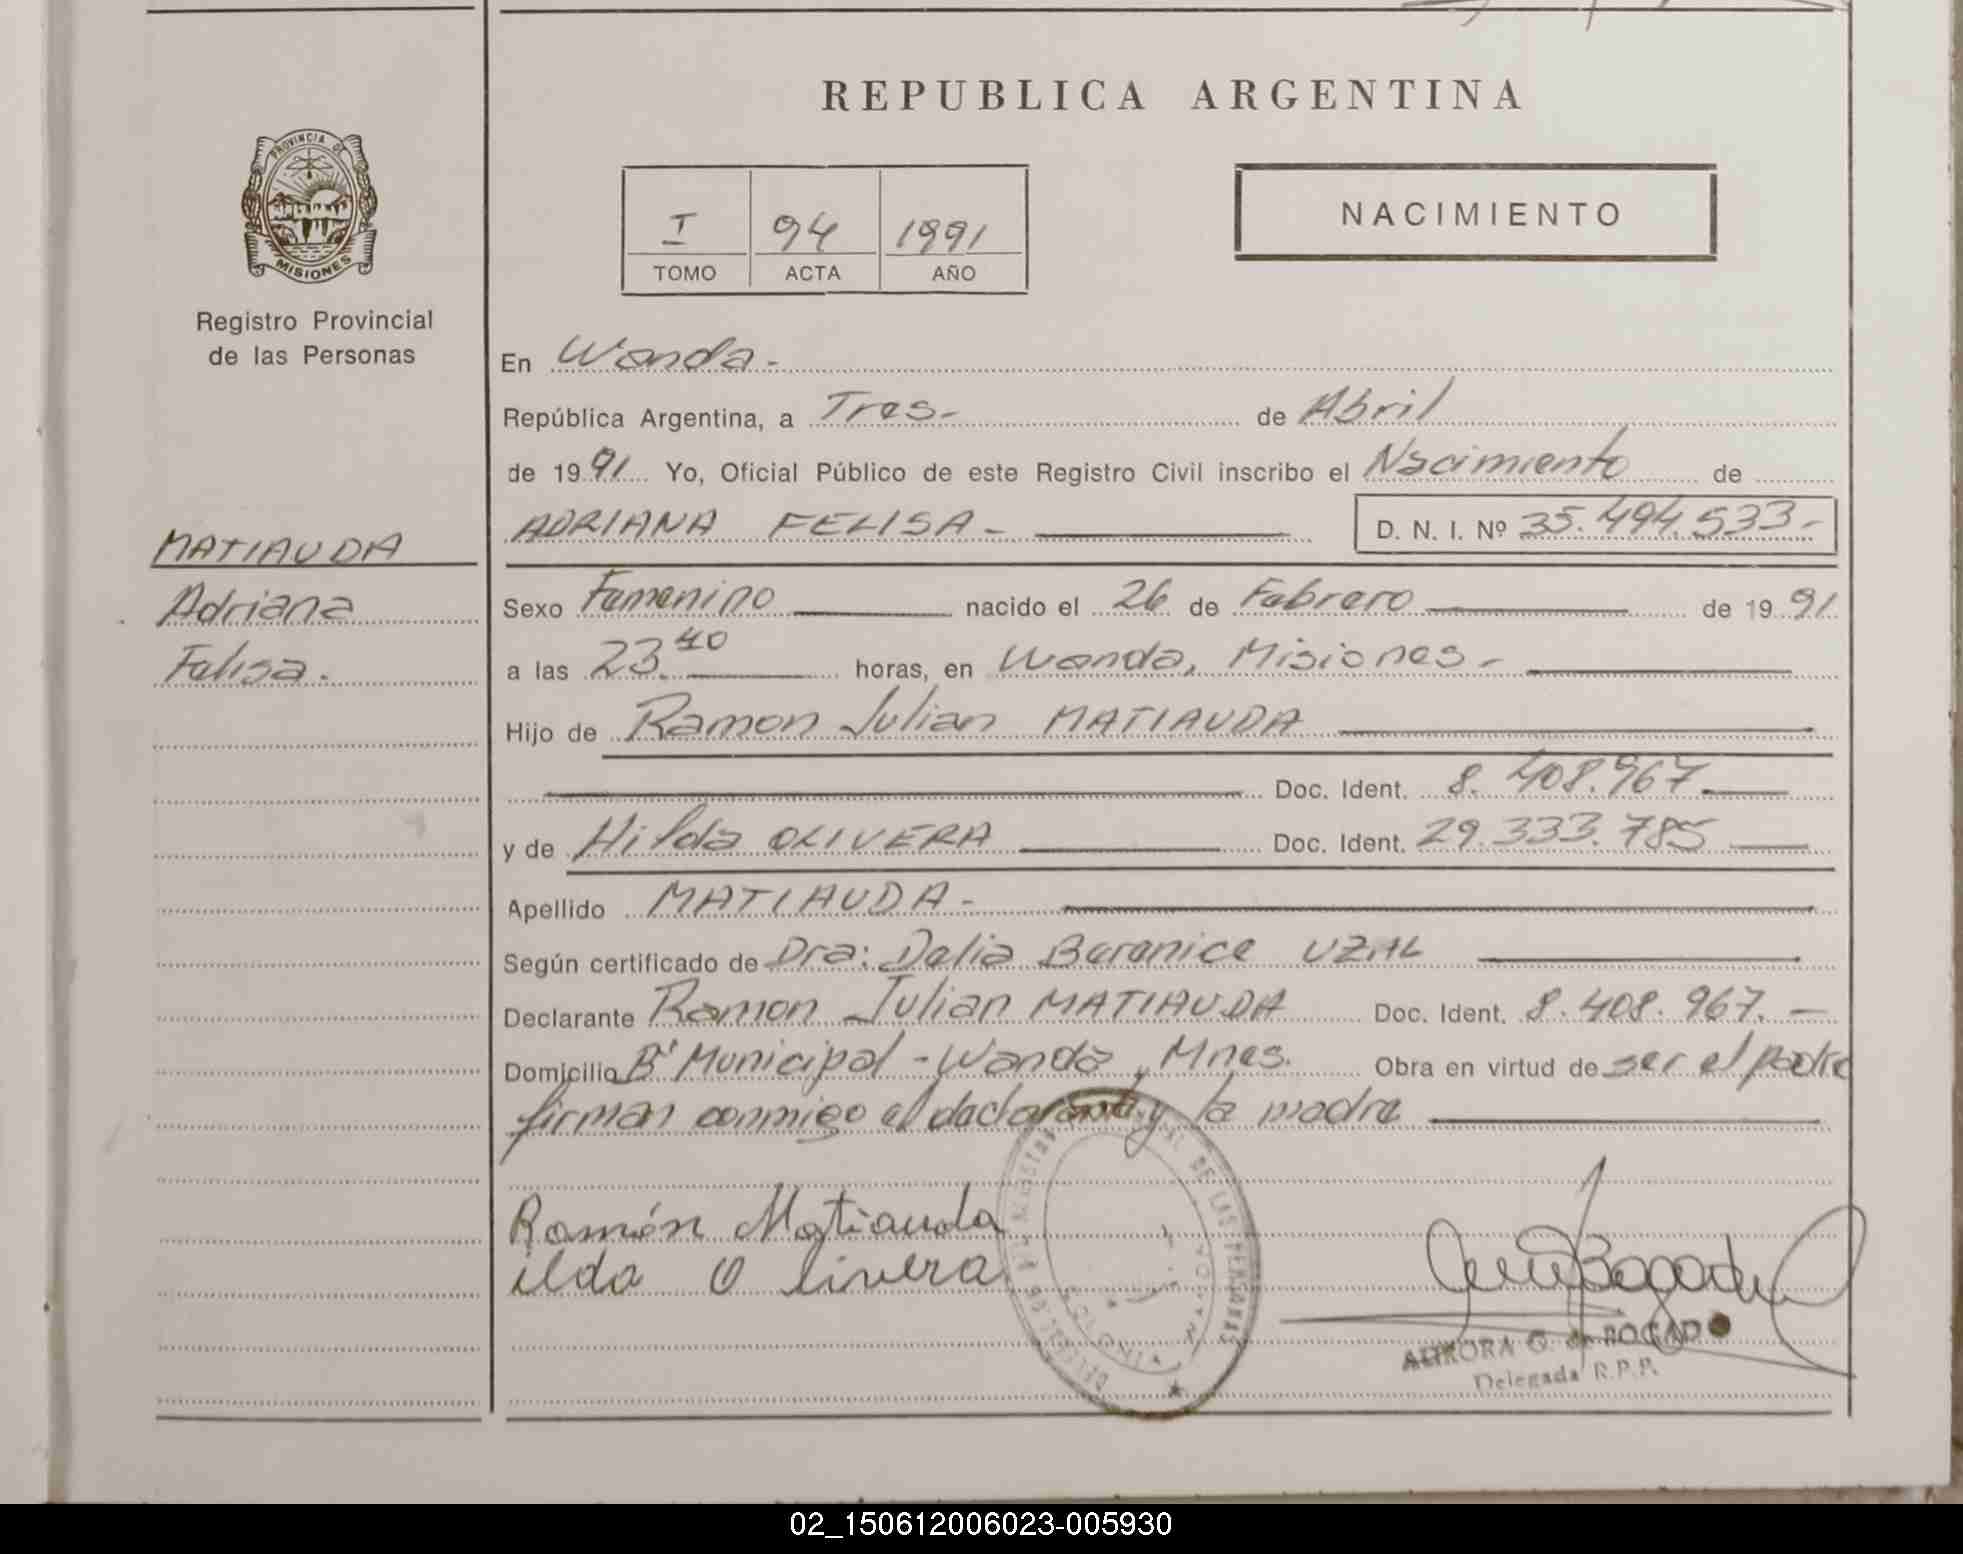 REPUBLICA ARGENTINA
PROVINCIA DE
MISIONES
Registro Provincial
de las Personas
I 94 1991
TOMO ACTA AÑO
NACIMIENTO
En Wanda.-
República Argentina, a Tres.- de Abril
de 1991 Yo, Oficial Público de este Registro Civil inscribo el Nacimiento de
ADRIANA FELISA - D. N. I. Nº 35.494.533.-
MATIAUDA
Adriana
Felisa.
Sexo Femenino nacido el 26 de Febrero de 1991
a las 23.40 horas, en Wanda, Misiones.-
Hijo de Ramon Julian MATIAUDA
Doc. Ident. 8.408.967
y de Hilda OLIVERA Doc. Ident. 29.333.785
Apellido MATIAUDA.-
Según certificado de Dra: Delia Berenice UZAL
Declarante Ramon Julian MATIAUDA Doc. Ident. 8.408.967.-
Domicilio Bº Municipal - Wanda, Mnes. Obra en virtud de ser el padre
firman conmigo el declarante y la madre
Ramón Matiauda
ilda Olivera
DE LAS PERSONAS
AURORA G. de BOGADO
Delegada R.P.P.
02_150612006023-005930